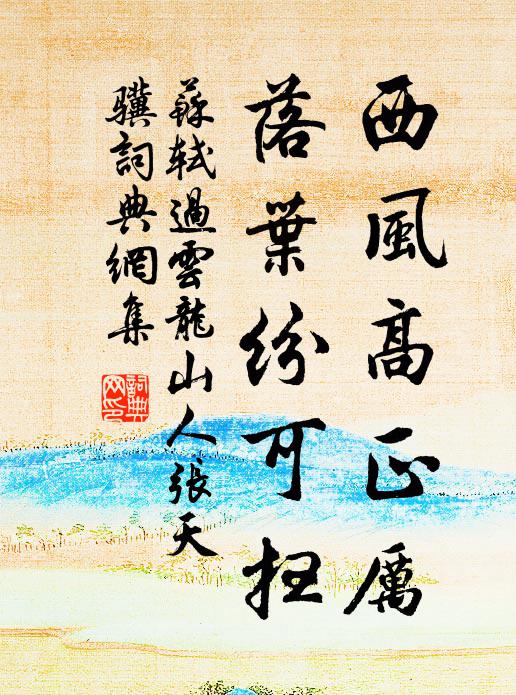 西風高正厲
落葉紛可扫
蘇軾過雲龍山人張天
驥詞典網集
詞典
网印